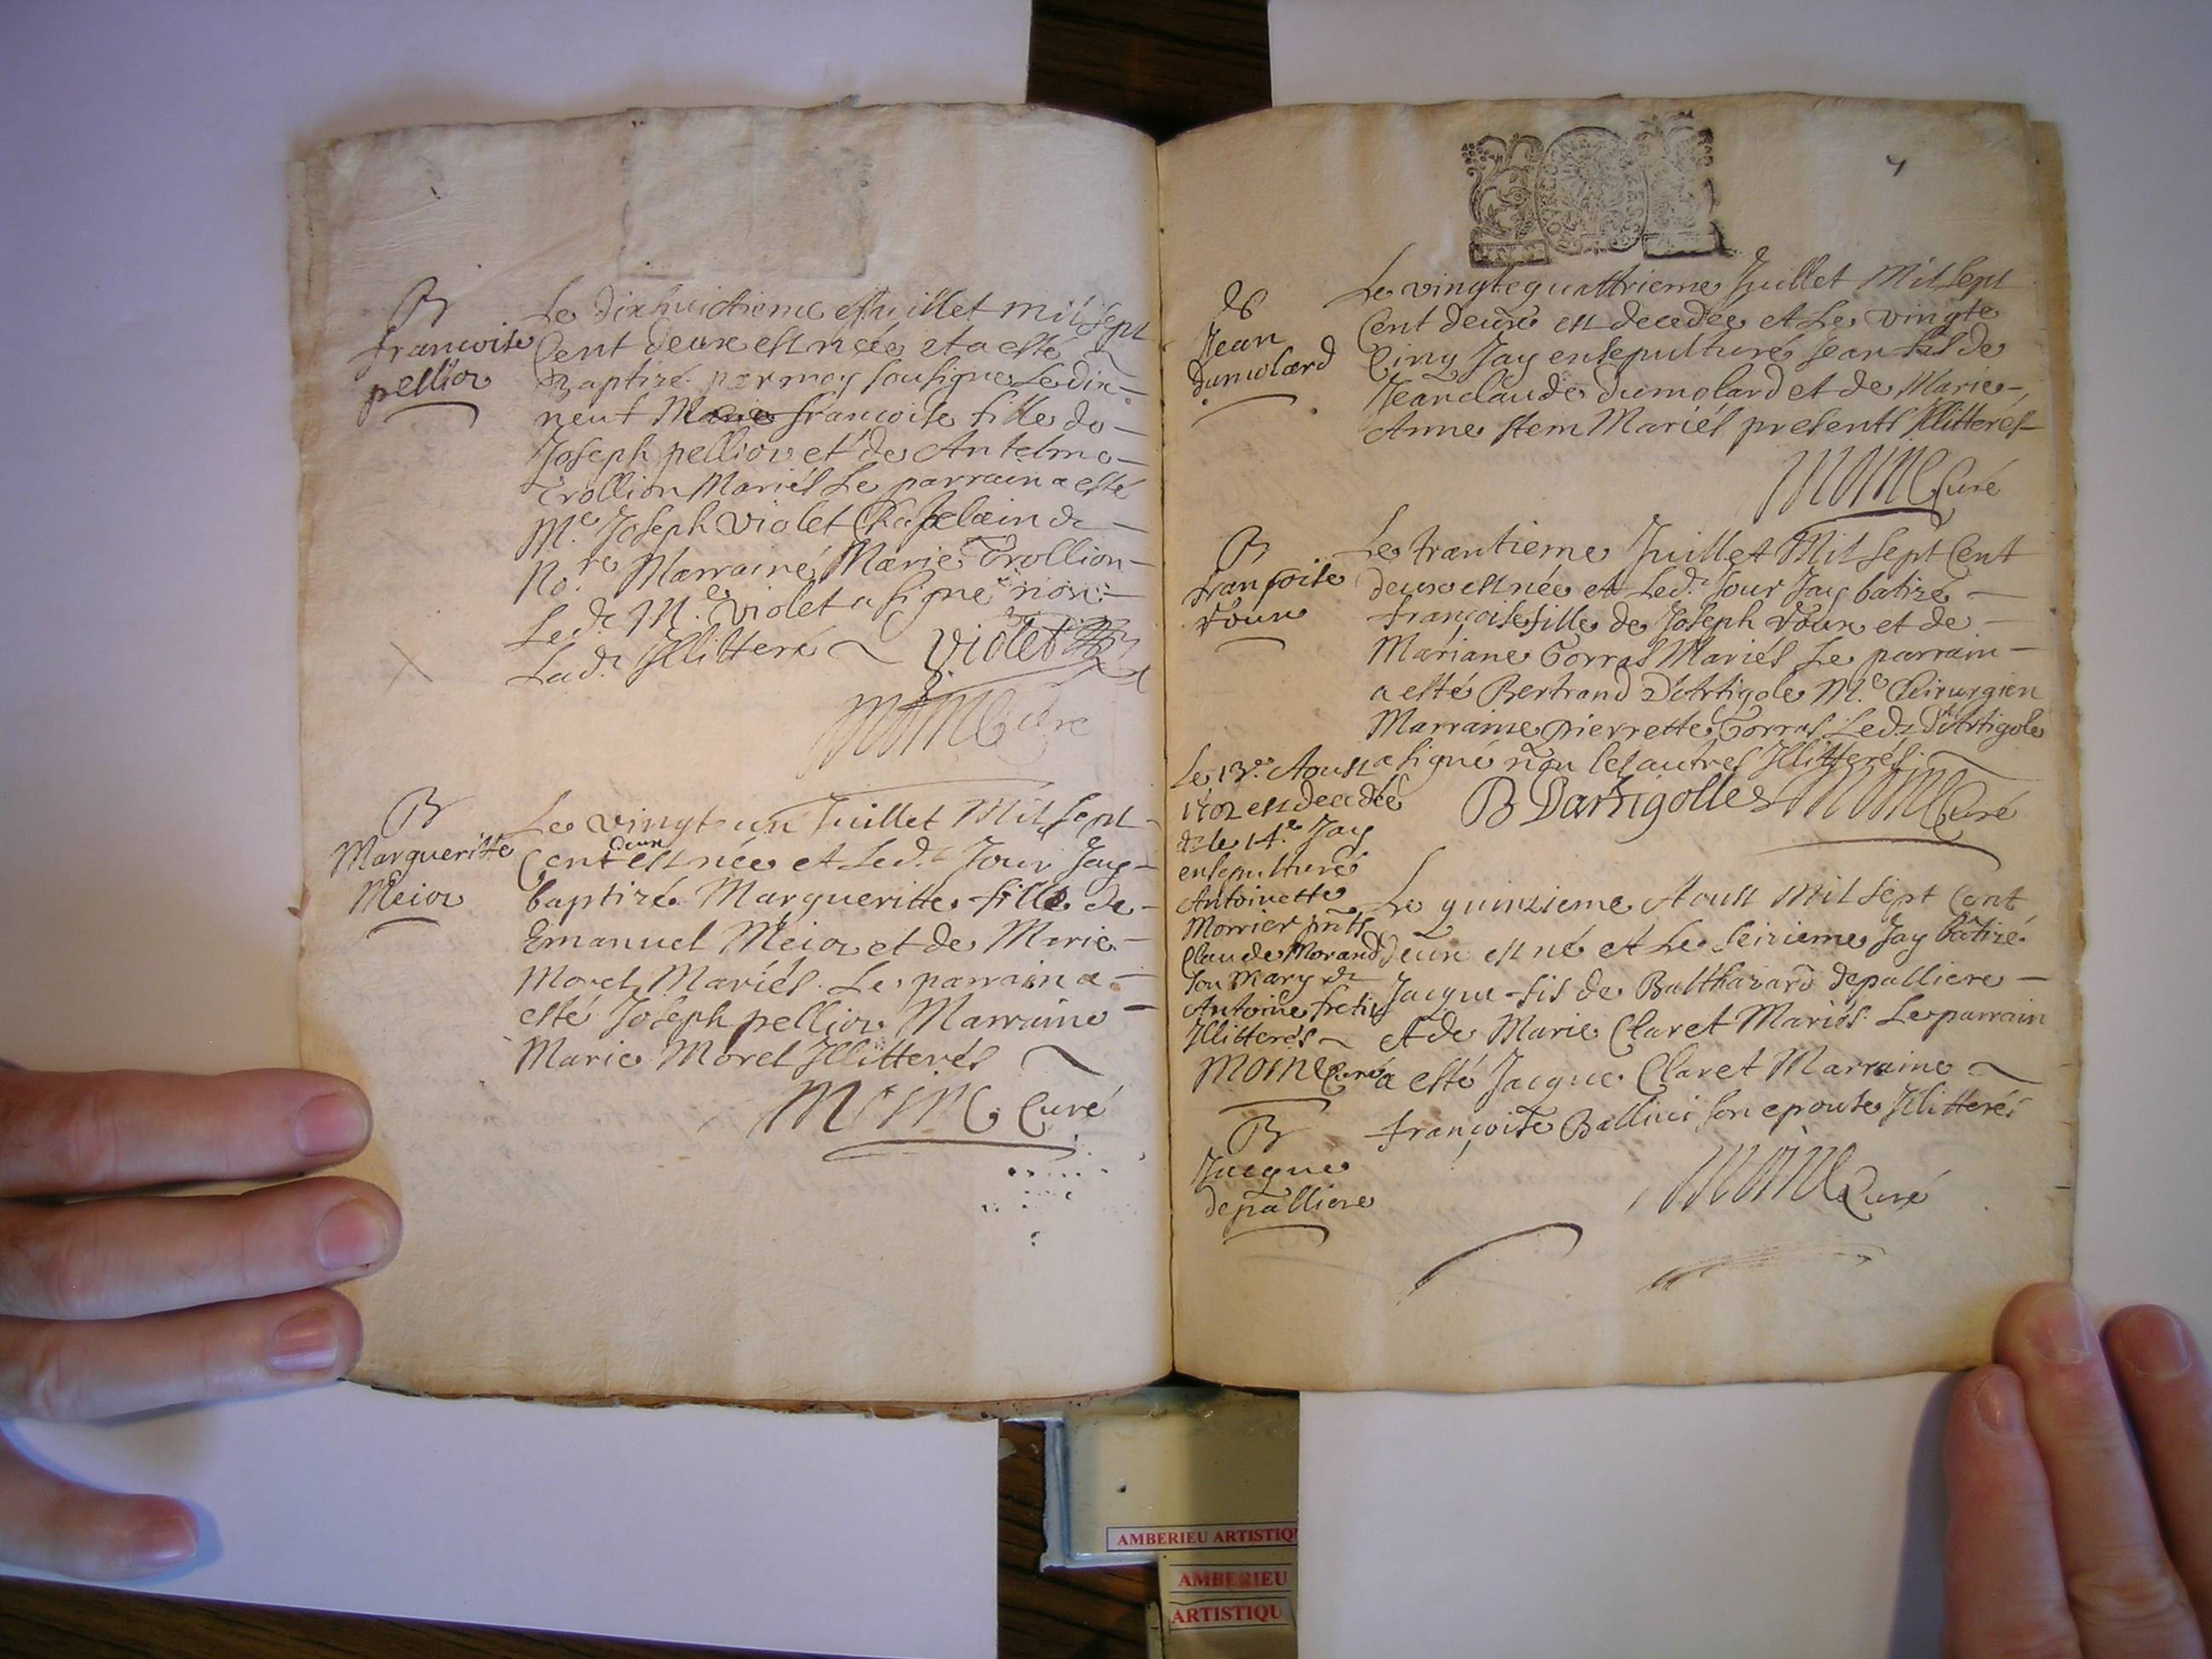 B
francoise
pellior
Le dixhuictieme Juillet mil sept
Cent deux est née et a esté
Baptizé par moy sousigné Le dix-
neuf Marie francoise fille de
Joseph pellior et de Antelme
Trollion Mariés Le parrain a esté
Me. Joseph Violet Chastelain de
No.re Marraine Marie Trollion
Led. Me. Violet a signé non
Lad. Illitteré Violet
Moine Curé
B
Margueritte
Meior
Le vingt un Juillet Mil sept
deux
Cent est née et Led. Jour Jay
baptizé Margueritte fille de
Emanuel Meior et de Marie
Morel Mariés. Le parrain a
esté Joseph pellior Marraine
Marie Morel Illitterés
Moine Curé
Jean
Dumolard
Le vingtequattrieme Juillet Mil sept
Cent deux est decedée et Le vingte
Cinq Jay ensepulturé Jean fils de
Jeanclaude Dumolard et de Marie
Anne stem Mariés presents Illitterés
Moine Curé
B
françoise
Le trantieme Juillet Mil sept Cent
deux est née et Led. Jour Jay batizé
françoise fille de Joseph et de
Mariane Gorras Mariés Le parrain
a esté Bertrand D'Artigole Me. Chirurgien
Marraine pierrette Gorras Led. D'Artigole
a signé non les autres Illitterés
B Dartigolles Moine Curé
Le 13e. Aoust
1702 est decedée
& le 14e Jay
ensepulturé
Antoinette
Morrier pnts
Claude Morand
son Mary &
Antoine
Illitterés
Moine Curé
B
Jacque
depalliere
Le quinzieme Aoust Mil sept Cent
deux est né et Le seizieme Jay batizé
Jacque fis de Balthazard depalliere
et de Marie Claret Mariés. Le parrain
a esté Jacque Claret Marraine
françoise Ballivi son epouse Illitterés
Moine Curé
AMBERIEU ARTISTIQU
AMBERIEU
ARTISTIQU